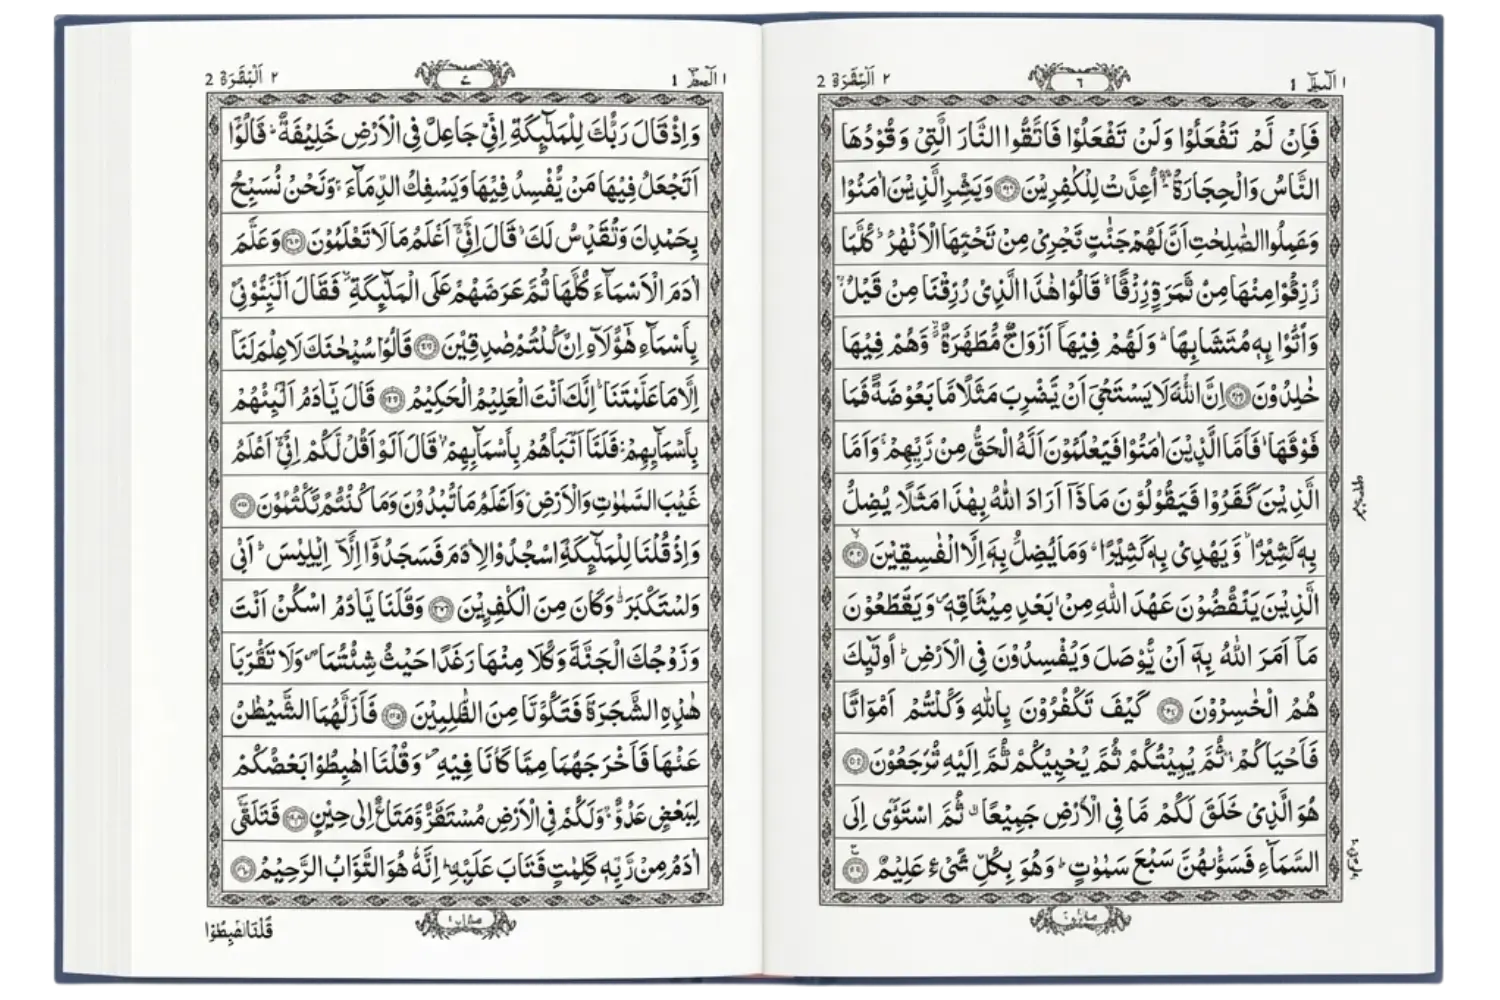 الٓمّٓ ١ 1
٦
اَلْبَقَرَة ٢ 2
فَاِنْ لَّمْ تَفْعَلُوْا وَلَنْ تَفْعَلُوْا فَاتَّقُوا النَّارَ الَّتِىْ وَقُوْدُهَا
النَّاسُ وَالْحِجَارَةُ ۖ اُعِدَّتْ لِلْكٰفِرِيْنَ وَبَشِّرِ الَّذِيْنَ اٰمَنُوْا
وَعَمِلُوا الصّٰلِحٰتِ اَنَّ لَهُمْ جَنّٰتٍ تَجْرِىْ مِنْ تَحْتِهَا الْاَنْهٰرُ ؕ كُلَّمَا
رُزِقُوْا مِنْهَا مِنْ ثَمَرَةٍ رِّزْقًا ۙ قَالُوْا هٰذَا الَّذِىْ رُزِقْنَا مِنْ قَبْلُ ۙ
وَاُتُوْا بِهٖ مُتَشَابِهًا ؕ وَلَهُمْ فِيْهَآ اَزْوَاجٌ مُّطَهَّرَةٌ ۙ وَّهُمْ فِيْهَا
خٰلِدُوْنَ اِنَّ اللّٰهَ لَا يَسْتَحْىٖٓ اَنْ يَّضْرِبَ مَثَلًا مَّا بَعُوْضَةً فَمَا
فَوْقَهَا ؕ فَاَمَّا الَّذِيْنَ اٰمَنُوْا فَيَعْلَمُوْنَ اَنَّهُ الْحَقُّ مِنْ رَّبِّهِمْ ۚ وَاَمَّا
الَّذِيْنَ كَفَرُوْا فَيَقُوْلُوْنَ مَاذَآ اَرَادَ اللّٰهُ بِهٰذَا مَثَلًا ۘ يُضِلُّ
بِهٖ كَثِيْرًا ۙ وَّيَهْدِىْ بِهٖ كَثِيْرًا ؕ وَمَا يُضِلُّ بِهٖٓ اِلَّا الْفٰسِقِيْنَ
الَّذِيْنَ يَنْقُضُوْنَ عَهْدَ اللّٰهِ مِنْۢ بَعْدِ مِيْثَاقِهٖ ۪ وَيَقْطَعُوْنَ
مَآ اَمَرَ اللّٰهُ بِهٖٓ اَنْ يُّوْصَلَ وَيُفْسِدُوْنَ فِى الْاَرْضِ ؕ اُولٰٓئِكَ
هُمُ الْخٰسِرُوْنَ كَيْفَ تَكْفُرُوْنَ بِاللّٰهِ وَكُنْتُمْ اَمْوَاتًا
فَاَحْيَاكُمْ ۚ ثُمَّ يُمِيْتُكُمْ ثُمَّ يُحْيِيْكُمْ ثُمَّ اِلَيْهِ تُرْجَعُوْنَ
هُوَ الَّذِىْ خَلَقَ لَكُمْ مَّا فِى الْاَرْضِ جَمِيْعًا ۗ ثُمَّ اسْتَوٰٓى اِلَى
السَّمَآءِ فَسَوّٰىهُنَّ سَبْعَ سَمٰوٰتٍ ؕ وَهُوَ بِكُلِّ شَىْءٍ عَلِيْمٌ
الٓمّٓ ١ 1
٧
اَلْبَقَرَة ٢ 2
وَاِذْ قَالَ رَبُّكَ لِلْمَلٰٓئِكَةِ اِنِّىْ جَاعِلٌ فِى الْاَرْضِ خَلِيْفَةً ؕ قَالُوْٓا
اَتَجْعَلُ فِيْهَا مَنْ يُّفْسِدُ فِيْهَا وَيَسْفِكُ الدِّمَآءَ ۚ وَنَحْنُ نُسَبِّحُ
بِحَمْدِكَ وَنُقَدِّسُ لَكَ ؕ قَالَ اِنِّىْٓ اَعْلَمُ مَا لَا تَعْلَمُوْنَ وَعَلَّمَ
اٰدَمَ الْاَسْمَآءَ كُلَّهَا ثُمَّ عَرَضَهُمْ عَلَى الْمَلٰٓئِكَةِ ۙ فَقَالَ اَنْۢبِئُوْنِىْ
بِاَسْمَآءِ هٰٓؤُلَآءِ اِنْ كُنْتُمْ صٰدِقِيْنَ قَالُوْا سُبْحٰنَكَ لَا عِلْمَ لَنَآ
اِلَّا مَا عَلَّمْتَنَا ؕ اِنَّكَ اَنْتَ الْعَلِيْمُ الْحَكِيْمُ قَالَ يٰٓاٰدَمُ اَنْۢبِئْهُمْ
بِاَسْمَآئِهِمْ ۚ فَلَمَّآ اَنْۢبَاَهُمْ بِاَسْمَآئِهِمْ ۙ قَالَ اَلَمْ اَقُلْ لَّكُمْ اِنِّىْٓ اَعْلَمُ
غَيْبَ السَّمٰوٰتِ وَالْاَرْضِ ۙ وَاَعْلَمُ مَا تُبْدُوْنَ وَمَا كُنْتُمْ تَكْتُمُوْنَ
وَاِذْ قُلْنَا لِلْمَلٰٓئِكَةِ اسْجُدُوْا لِاٰدَمَ فَسَجَدُوْٓا اِلَّآ اِبْلِيْسَ ؕ اَبٰى
وَاسْتَكْبَرَ ۗ وَكَانَ مِنَ الْكٰفِرِيْنَ وَقُلْنَا يٰٓاٰدَمُ اسْكُنْ اَنْتَ
وَزَوْجُكَ الْجَنَّةَ وَكُلَا مِنْهَا رَغَدًا حَيْثُ شِئْتُمَا ۪ وَلَا تَقْرَبَا
هٰذِهِ الشَّجَرَةَ فَتَكُوْنَا مِنَ الظّٰلِمِيْنَ فَاَزَلَّهُمَا الشَّيْطٰنُ
عَنْهَا فَاَخْرَجَهُمَا مِمَّا كَانَا فِيْهِ ۪ وَقُلْنَا اهْبِطُوْا بَعْضُكُمْ
لِبَعْضٍ عَدُوٌّ ۚ وَلَكُمْ فِى الْاَرْضِ مُسْتَقَرٌّ وَّمَتَاعٌ اِلٰى حِيْنٍ فَتَلَقّٰٓى
اٰدَمُ مِنْ رَّبِّهٖ كَلِمٰتٍ فَتَابَ عَلَيْهِ ؕ اِنَّهٗ هُوَ التَّوَّابُ الرَّحِيْمُ
قُلْنَا اهْبِطُوْا